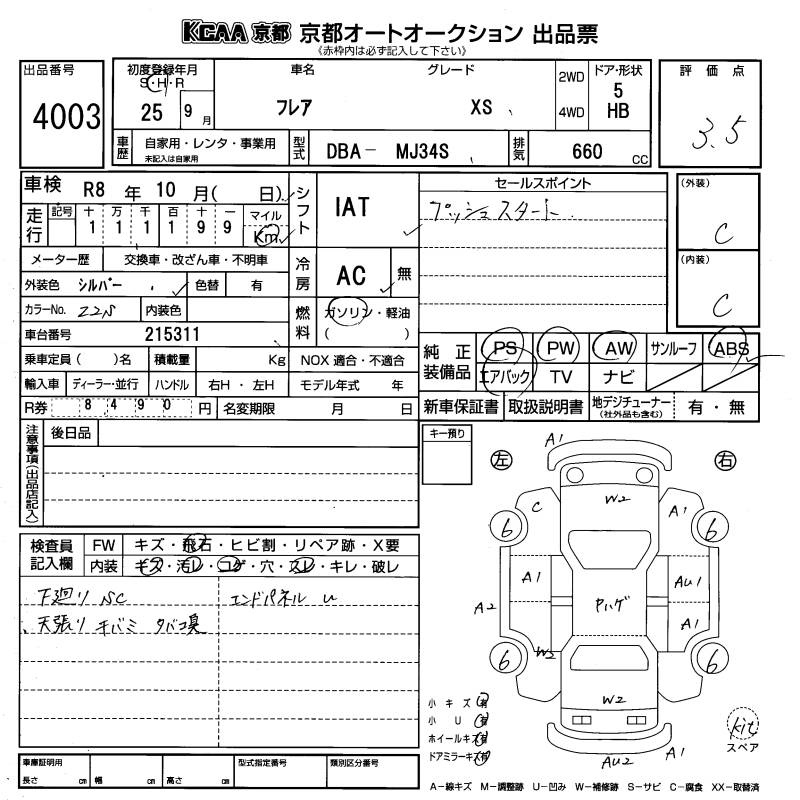 KCAA 京都 京都オートオークション 出品票
《赤枠内は必ず記入して下さい》
出品番号
4003
初度登録年月
S・H・R
25 9 月
車名
フレア
グレード
XS
2WD
4WD
ドア・形状
5
HB
評価点
3.5
車歴 自家用・レンタ・事業用
未記入は自家用
型式 DBA- MJ34S
排気 660 cc
車検 R8 年 10 月( 日)
走行 記号 十 万 千 百 十 一 マイル
1 1 1 1 9 9 Km
シフト IAT
メーター歴 交換車・改ざん車・不明車
冷房 AC 無
外装色 シルバー 色替 有
カラーNo. Z2S 内装色
燃料 ガソリン・軽油
( )
車台番号 215311
乗車定員( )名 積載量 Kg NOX 適合・不適合
輸入車 ディーラー・並行 ハンドル 右H・左H モデル年式 年
R券 8490 円 名変期限 月 日
セールスポイント
プッシュスタート
(外装)
C
(内装)
C
純正装備品 PS PW AW サンルーフ ABS
エアバック TV ナビ
新車保証書 取扱説明書 地デジチューナー(社外品も含む) 有・無
注意事項(出品店記入) 後日品
キー預り
検査員記入欄 FW キズ・飛石・ヒビ割・リペア跡・X要
内装 キズ・汚レ・コゲ・穴・スレ・キレ・破レ
下廻り SC エンドパネル U
天張り キバミ タバコ臭
左 右
A1
W2
C A1
6 6
A1 AU1
A2 Pハゲ A1 A1
W2
6 6
W2
AU2 A1
小キズ 有
小U 有
ホイールキズ 有
ドアミラーキズ 有
kit
スペア
車庫証明用 型式指定番号 類別区分番号
長さ cm 幅 cm 高さ cm
A−線キズ M−調整跡 U−凹み W−補修跡 S−サビ C−腐食 XX−取替済